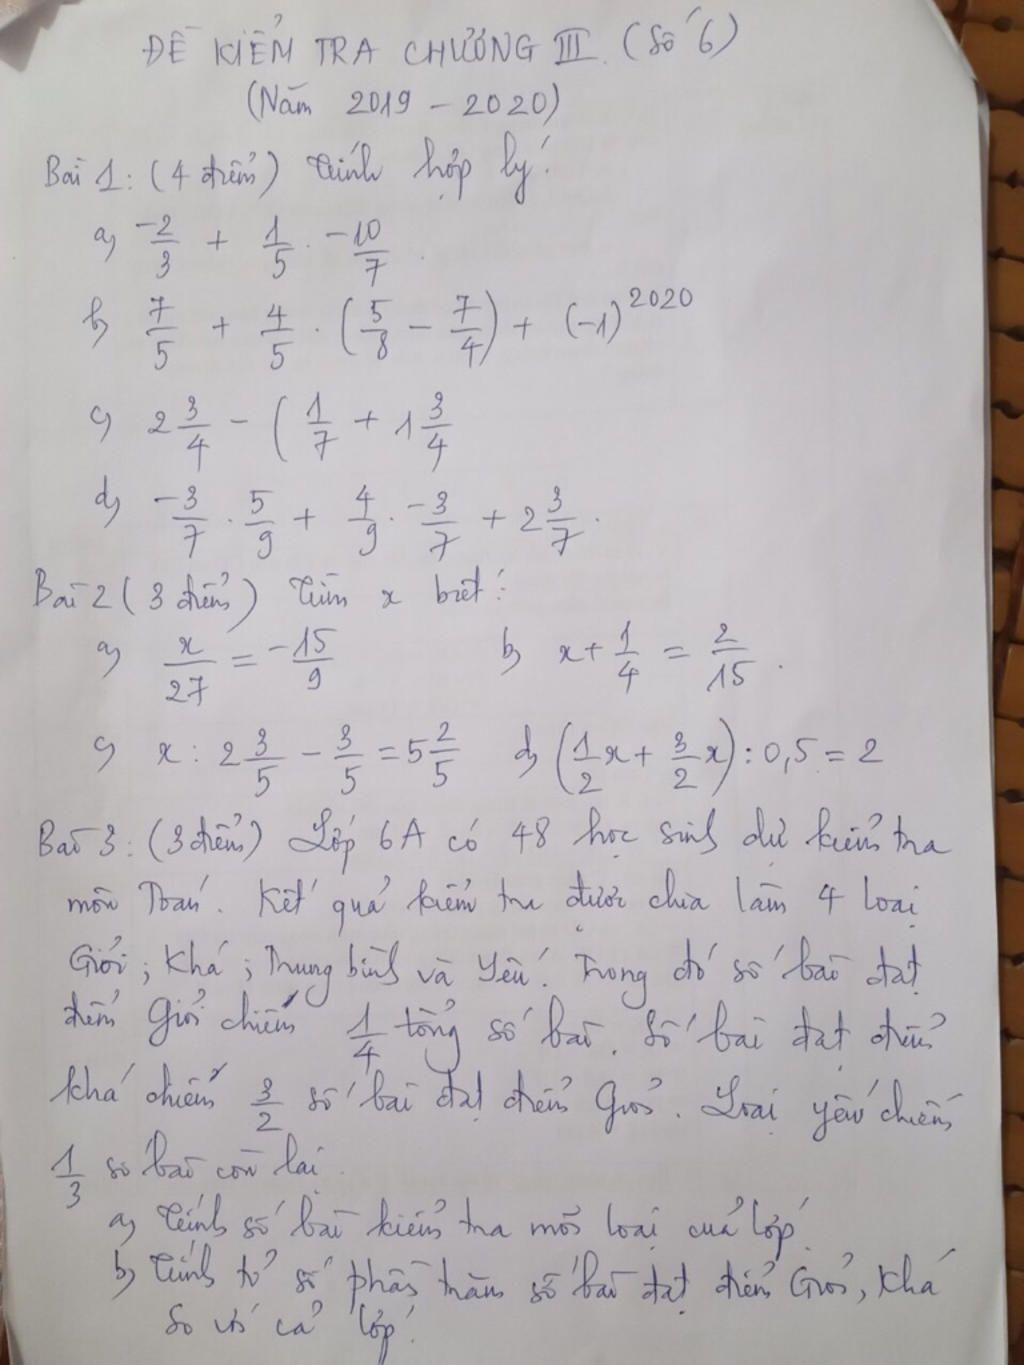 ĐỀ KIỂM TRA CHƯƠNG III. (Số 6)
(Năm 2019 - 2020)
Bài 1: (4 điểm) Tính hợp lý:
a) -2/3 + 1/5 . -10/7
b) 7/5 + 4/5 . (5/8 - 7/4) + (-1)^2020
c) 2 3/4 - (1/7 + 1 3/4
d) -3/7 . 5/9 + 4/9 . -3/7 + 2 3/7.
Bài 2 (3 điểm) Tìm x biết:
a) x/27 = -15/9 b) x + 1/4 = 2/15.
c) x : 2 3/5 - 3/5 = 5 2/5 d) (1/2x + 3/2x) : 0,5 = 2
Bài 3: (3 điểm) Lớp 6A có 48 học sinh dự kiểm tra
môn Toán. Kết quả kiểm tra được chia làm 4 loại
Giỏi; Khá; Trung bình và Yếu. Trong đó số bài đạt
điểm Giỏi chiếm 1/4 tổng số bài. Số bài đạt điểm
khá chiếm 3/2 số bài đạt điểm Giỏi. Loại yếu chiếm
1/3 số bài còn lại.
a) Tính số bài kiểm tra mỗi loại của lớp.
b) Tính tỉ số phần trăm số bài đạt điểm Giỏi, Khá
so với cả lớp.